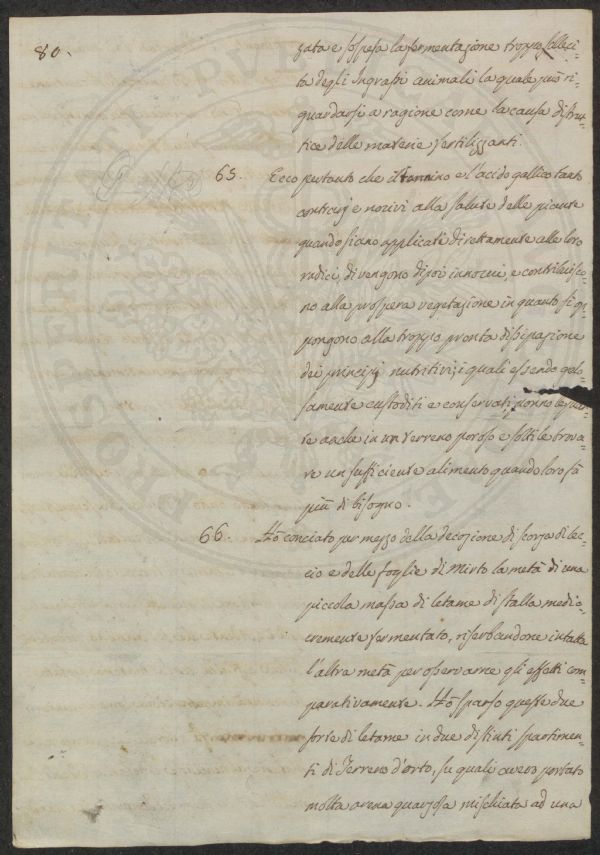 80.
zata e sospesa la fermentazione troppo solleci=
ta degli Ingrassi animali la quale può ri=
guardarsi a ragione come la causa distrut=
tice delle materie fertilizzanti.
65. Ecco pertanto che il tannino e l'acido gallico tanto
contrarj e nocivi alla salute delle piante
quando siano applicati direttamente alle loro
radici, divengono dipoi innocui, e contribuisco=
no alla prospera vegetazione in quanto si op=
pongono alla troppo pronta dissipazione
dei principj nutritivi; i quali essendo gelo=
samente custoditi e conservati, ponno le pian=
te anche in un terreno poroso e sottile trova=
re un sufficiente alimento quando loro fà
più di bisogno.
66. Hò conciato per mezzo della decozione di scorza di lec=
cio e delle foglie di Mirto la metà di una
piccola massa di letame di stalla medio=
cremente fermentato, riserbandone intatta
l'altra metà per osservarne gli effetti com=
parativamente. Hò sparso queste due
sorte di letame in due distinti spartimen=
ti di Terreno d'orto, su quali avevo portato
molta arena quarzosa mischiata ad una
PROSPERITATI PUBLICAE